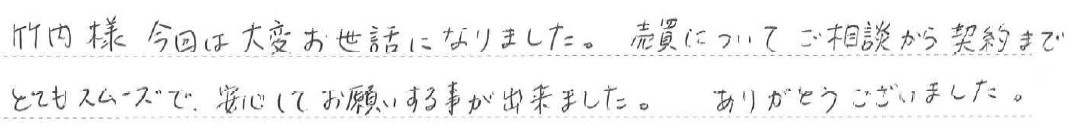 竹内様 今回は大変お世話になりました。 売買についてご相談から契約まで
とてもスムーズで、安心してお願いする事が出来ました。 ありがとうございました。